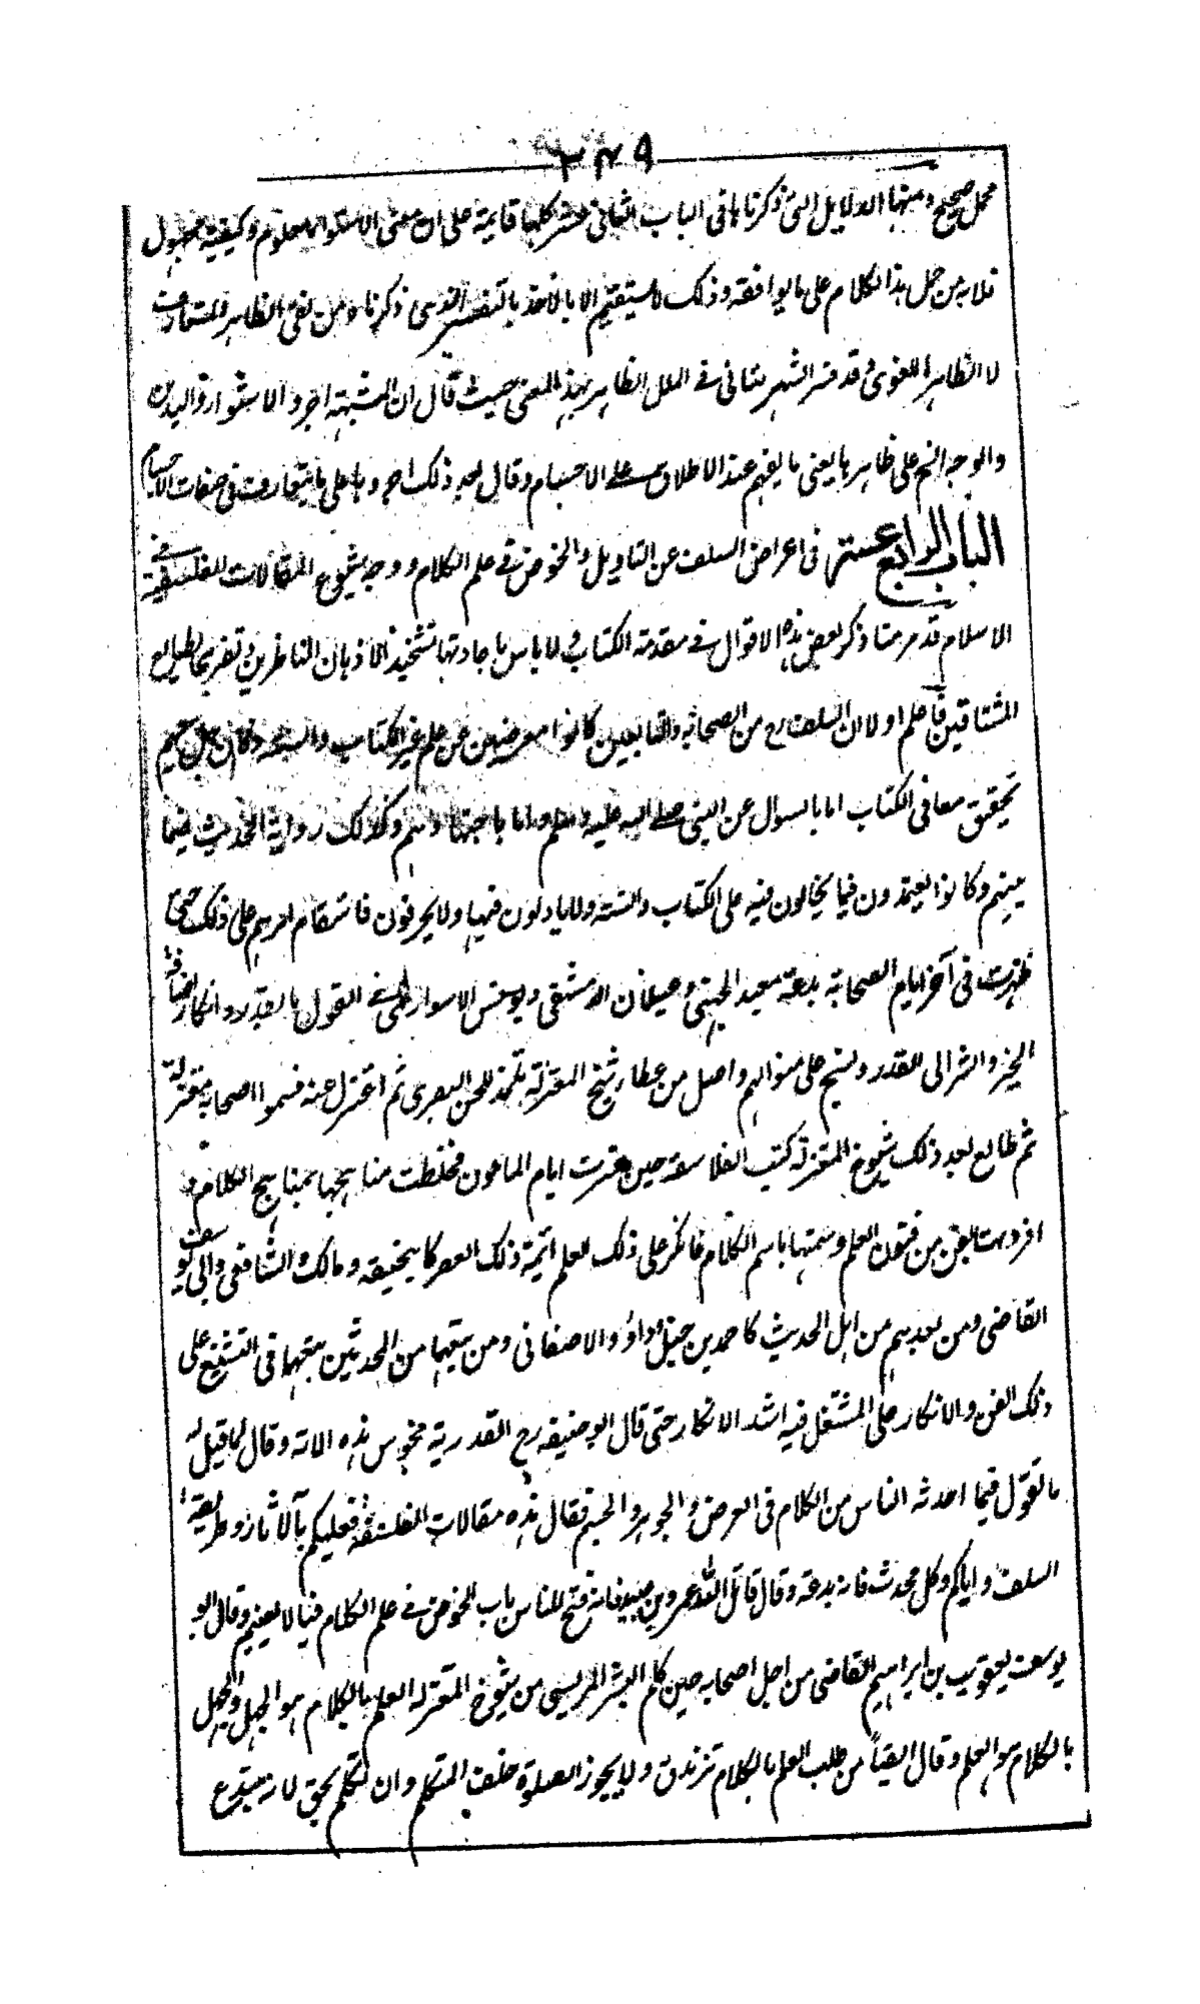 ٢٤٩
محمل صحيح ومنها الدلايل التي ذكرناها في الباب الثاني عشر كلها قايمة على ان معنى الاستواء معلوم وكيفيته مجهول
فلابد من حمل هذا الكلام على ما يوافقه وذلك لا يستقيم الا بالاخذ بالتفسير الذى ذكرناه ومن نفى الظاهر المتعارف
لا الظاهر اللغوى وقد فسر الشهرستانى فى الملل الظاهر بهذا المعنى حيث قال ان المشبهة اجروا الاستواء واليدين
والوجه الخ على ظاهرها يعنى ما يفهم عند الاطلاق على الاجسام وقال بعد ذلك اجروها على ما يتعارف فى صفات الاجسام
الباب الرابع عشر فى اعراض السلف عن التاويل والخوض فى علم الكلام ووجه شيوع المقالات الفلسفية فى
الاسلام قد مر منا ذكر بعض هذه الاقوال فى مقدمة الكتاب ولا باس باعادتها تشحيذا لاذهان الناظرين وتفريحا لطبايع
المشتاقين فاعلم اولا ان السلف رح من الصحابة والتابعين كانوا معرضين عن علم غير الكتاب والسنة وكان جل همهم
تحقيق معانى الكتاب اما بالسوال عن النبى صلى الله عليه وسلم واما باجتهادهم وكذلك رواية الحديث فيما
بينهم وكانوا يعتمدون فيما يخالون فيه على الكتاب والسنة ولا يادلون فيها ولا يحرفون فاستقام امرهم على ذلك حتى
ظهرت فى آخر ايام الصحابة بدعة معبد الجهنى وغيلان الدمشقى ويونس الاسوارى فى القول بالقدر وانكار اضافة
الخير والشر الى القدر ونسج على منوالهم واصل بن عطا رشيخ المعتزلة تلميذ الحسن البصرى ثم اعتزل عنه فسموا اصحابه معتزلة
ثم طالع بعد ذلك شيوخ المعتزلة كتب الفلاسفة حين عزبت ايام المامون فخلطت مناهجها بمناهج الكلام و
افردت الفن من فنون العلم وسمتها باسم الكلام فانكر على ذلك العلم ائمة ذلك العصر كابيحنيفة ومالك والشافعى وابى يوسف
القاضى ومن بعدهم من اهل الحديث كاحمد بن حنبل وداؤد الاصفانى ومن يتبعها من المحدثين بتبعها فى التشنيع على
ذلك الفن والانكار على المشتغل فيه اشد الانكار حتى قال ابو حنيفة رح القدرية مجوس هذه الامة وقال لما قيل له
ما تقول فيما احدثه الناس من الكلام فى العرض والجوهر والجسم فقال هذه مقالات الفلسفة فعليكم بالآثار وطريقة
السلف واياكم وكل محدث فانه بدعة وقال قاتل الله عمرو بن عبيد فانه فتح للناس باب الخوض فى علم الكلام فيما لا يعنيهم وقال ابو
يوسف يعقوب بن ابراهيم القاضى من اجل اصحابه حين كلم البشر المريسى من شيوخ المعتزلة العلم بالكلام هو الجهل والجهل
بالكلام هو العلم وقال ايضا من طلب العلم بالكلام تزندق ولا يجوز الصلوة خلف المتكلم وان تكلم بحق لانه مبتدع